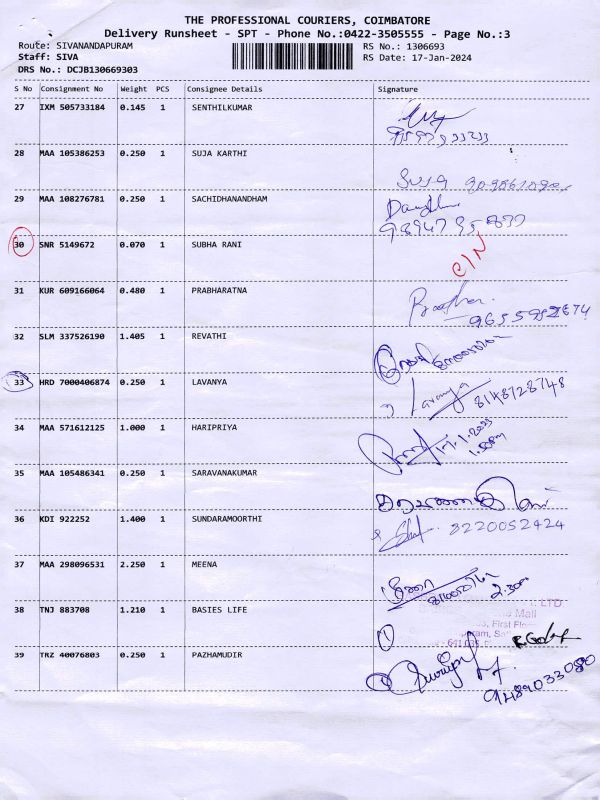 THE PROFESSIONAL COURIERS, COIMBATORE
Delivery Runsheet - SPT - Phone No.:0422-3505555 - Page No.:3
Route: SIVANANDAPURAM RS No.: 1306693
Staff: SIVA RS Date: 17-Jan-2024
DRS No.: DCJB130669303
S No Consignment No Weight PCS Consignee Details Signature
27 IXM 505733184 0.145 1 SENTHILKUMAR
28 MAA 105386253 0.250 1 SUJA KARTHI
Suja
29 MAA 108276781 0.250 1 SACHIDHANANDHAM
30 SNR 5149672 0.070 1 SUBHA RANI
C/N
31 KUR 609166064 0.480 1 PRABHARATNA
32 SLM 337526190 1.405 1 REVATHI
33 HRD 7000406874 0.250 1 LAVANYA
Lavanya 8148728748
34 MAA 571612125 1.000 1 HARIPRIYA
35 MAA 105486341 0.250 1 SARAVANAKUMAR
36 KDI 922252 1.400 1 SUNDARAMOORTHI
8220052424
37 MAA 298096531 2.250 1 MEENA
2.30
38 TNJ 883708 1.210 1 BASIES LIFE
LTD
Mall
First
39 TRZ 40076803 0.250 1 PAZHAMUDIR
9489033080